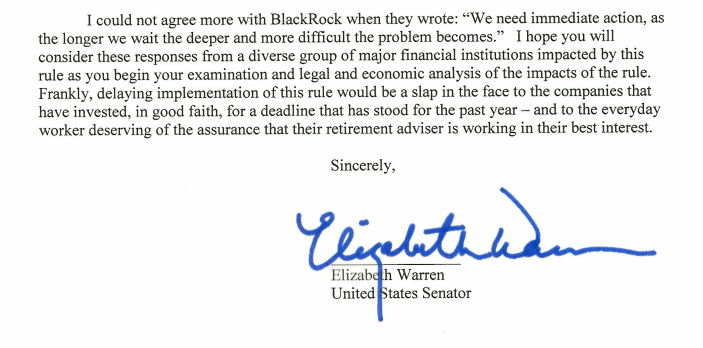 I could not agree more with BlackRock when they wrote: “We need immediate action, as
the longer we wait the deeper and more difficult the problem becomes.” I hope you will
consider these responses from a diverse group of major financial institutions impacted by this
rule as you begin your examination and legal and economic analysis of the impacts of the rule.
Frankly, delaying implementation of this rule would be a slap in the face to the companies that
have invested, in good faith, for a deadline that has stood for the past year – and to the everyday
worker deserving of the assurance that their retirement adviser is working in their best interest.
Sincerely,
Elizabeth Warren
Elizabeth Warren
United States Senator